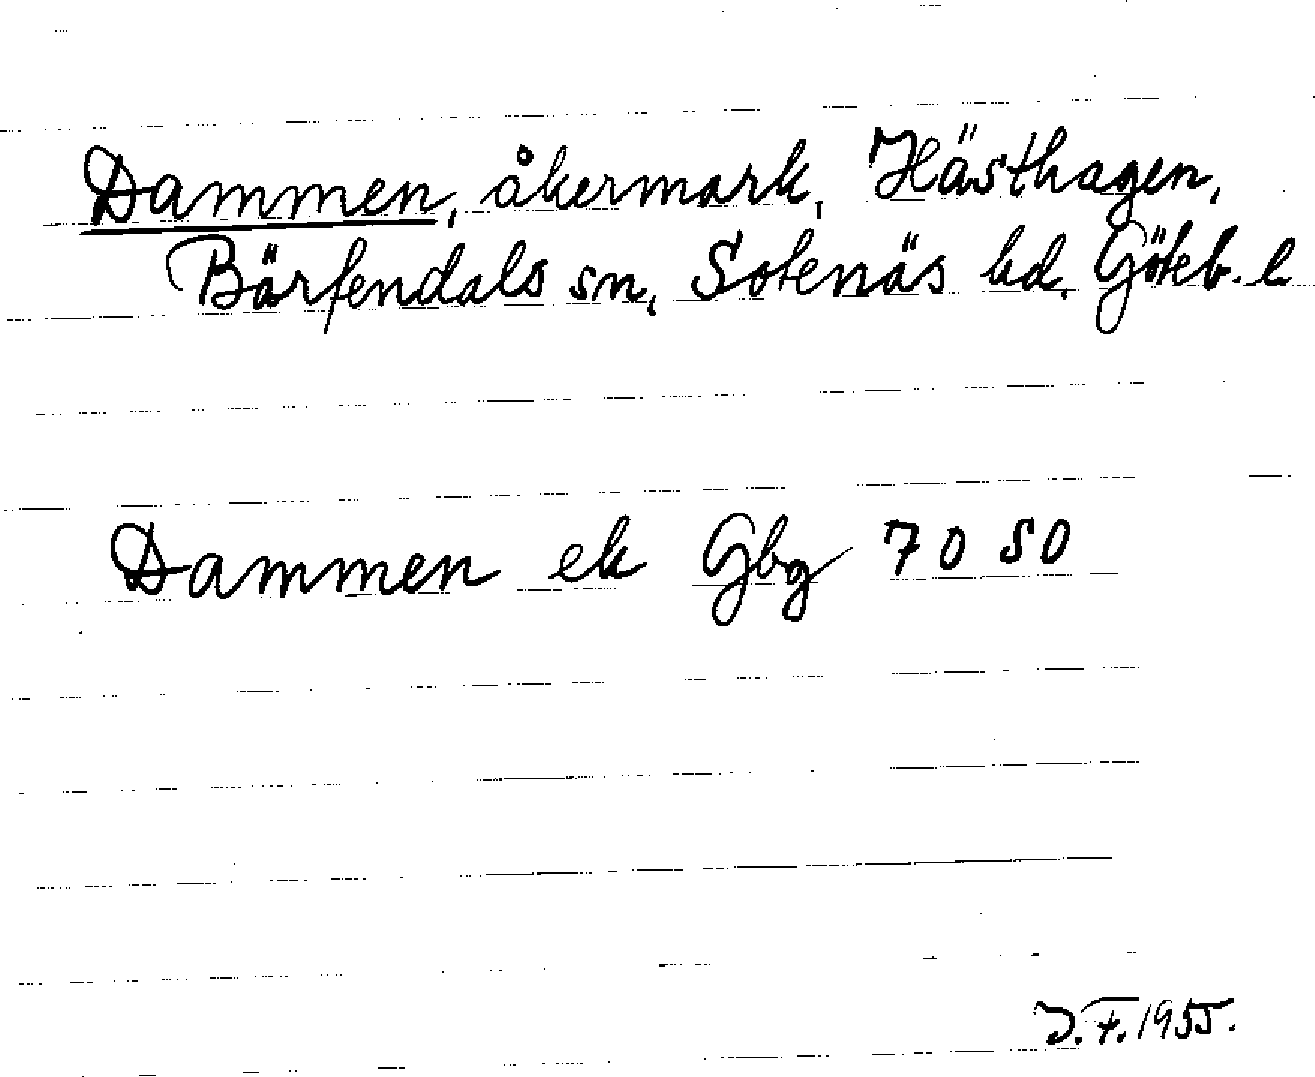 Dammen, åkermark, Hästhagen,
Bärfendals sn, Sotenäs hd. Göteb. l
Dammen ek Gbg 70 50
J.F. 1955.